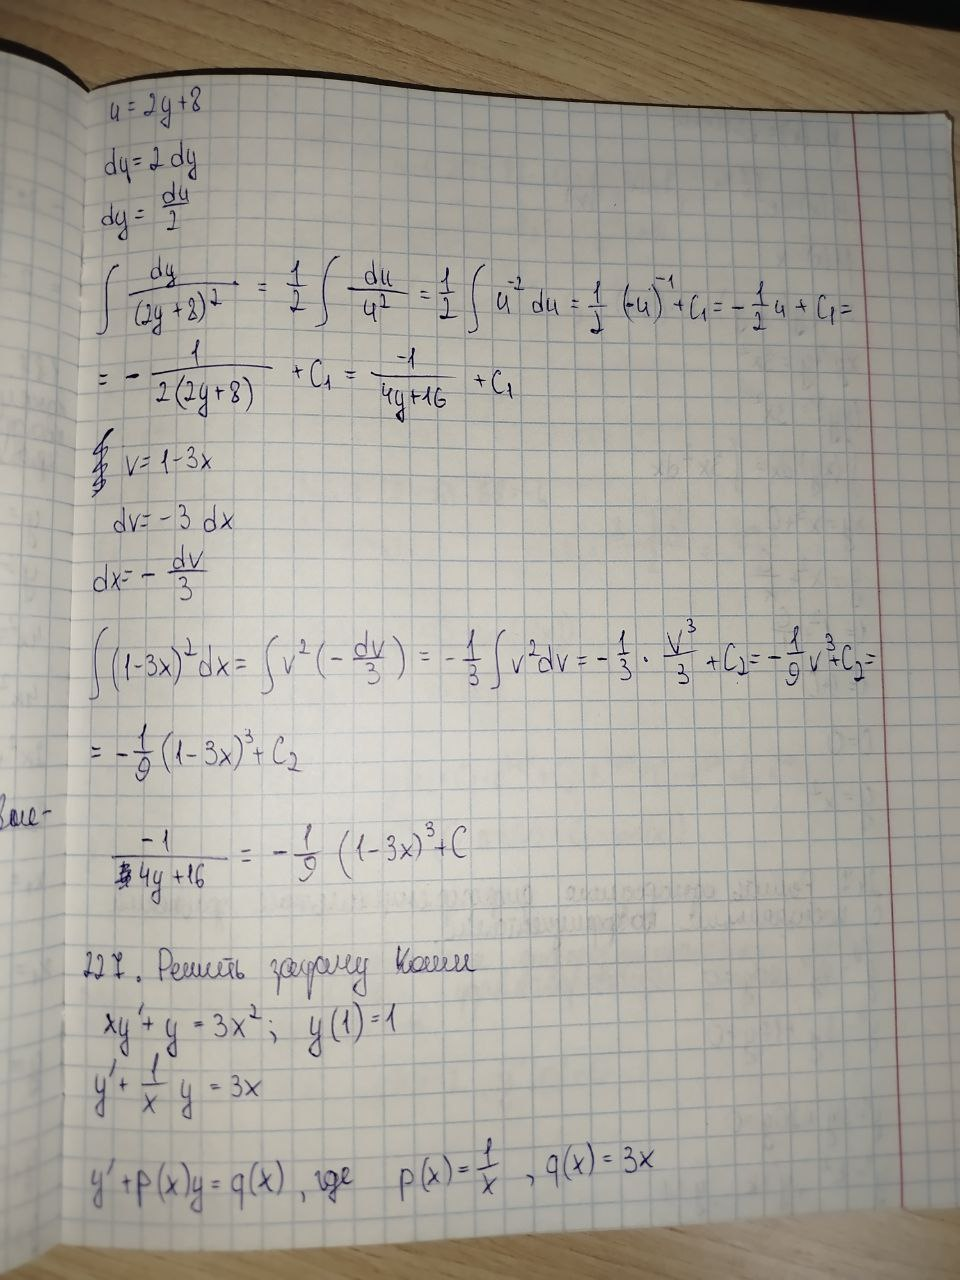 u = 2y+8
dy = 2 dy
dy = du/2
∫ dy/(2y+8)² = 1/2 ∫ du/u² = 1/2 ∫ u⁻² du = 1/2 (-u)⁻¹ + C₁ = - 1/2 u + C₁ =
= - 1/(2(2y+8)) + C₁ = -1/(4y+16) + C₁
v = 1-3x
dv = -3 dx
dx = - dv/3
∫ (1-3x)² dx = ∫ v² (- dv/3) = - 1/3 ∫ v² dv = - 1/3 · v³/3 + C₂ = - 1/9 v³ + C₂ =
= - 1/9 (1-3x)³ + C₂
-1/(4y+16) = - 1/9 (1-3x)³ + C
227. Решить задачу Коши
xy' + y = 3x²; y(1) = 1
y' + 1/x y = 3x
y' + p(x)y = q(x), где p(x) = 1/x, q(x) = 3x